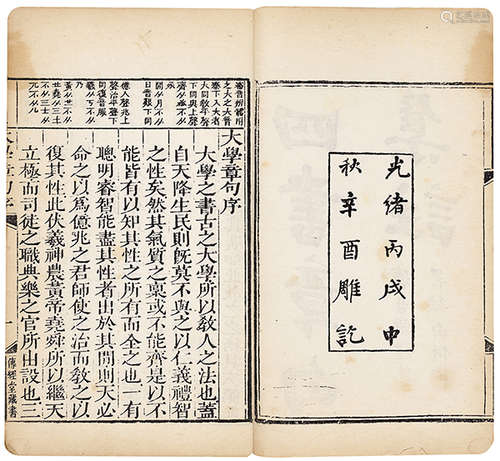 光緒丙戌中
秋辛酉雕訖
下同與上聲
間从月不从
日音艱下同
聲治平聲下
同復音服
乃
大學章句序
大學之書古之大學所以教人之法也蓋
自天降生民則既莫不與之以仁義禮智
之性矣然其氣質之稟或不能齊是以不
能皆有以知其性之所有而全之也一有
聰明睿智能盡其性者出於其間則天必
命之以為億兆之君師使之治而教之以
復其性此伏羲神農黃帝堯舜所以繼天
立極而司徒之職典樂之官所由設也三
大學章句序
一
傳經堂藏書